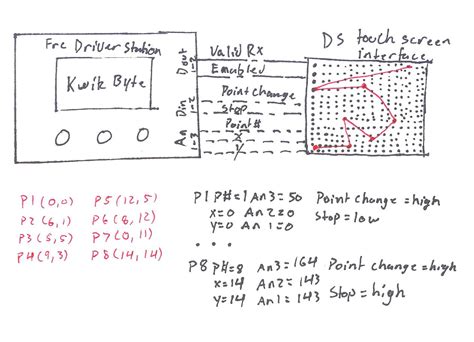 Frc Driver Station
Kwik Byte
Dout
1-2
Din
1-2
An
1-3
Valid Rx
Enabled
Point change
Stop
Point#
X
Y
DS touch screen
interface
P1(0,0) P5(12,5)
P2(6,1) P6(8,12)
P3(5,5) P7(0,11)
P4(9,3) P8(14,14)
P1 P#=1 An3=50 Point change =high
x=0 An2=0 Stop=low
y=0 An1=0
...
P8 P#=8 An3=164 Point change=high
x=14 An2=143
y=14 An1=143 Stop=high